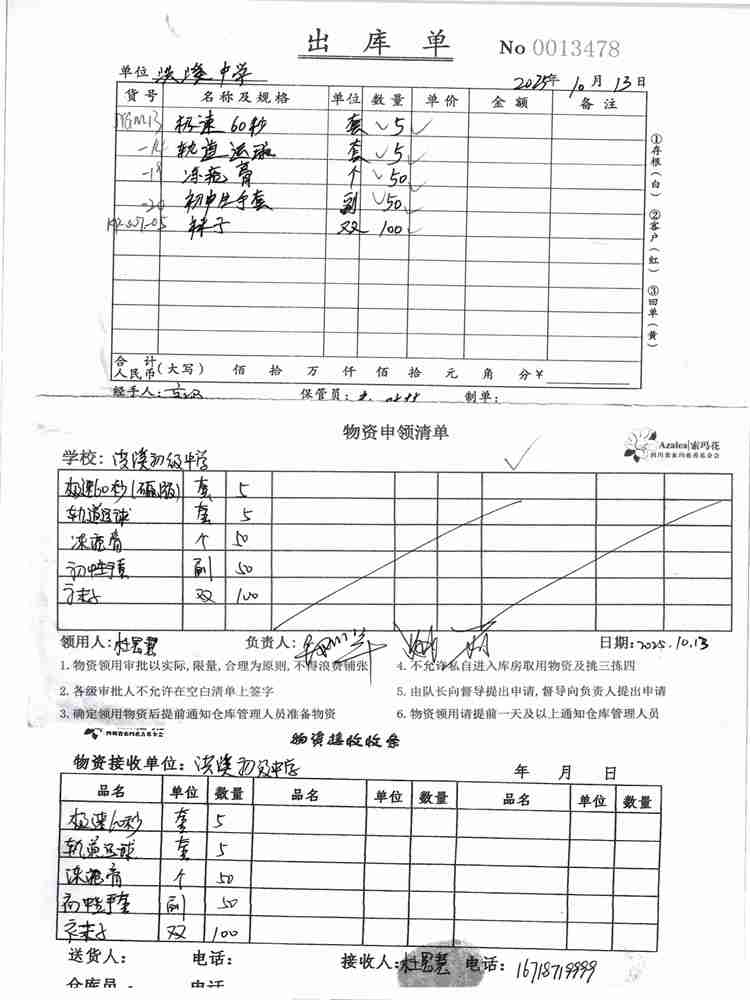 出 库 单 No 0013478
单位 洪溪中学 2025年 10月 13日
货号 名称及规格 单位 数量 单价 金额 备注
极速60秒 套 5
-14 轨道运球 套 5
-18 冻疮膏 个 50
-20 初中生手套 副 50
袜子 双 100
①存根(白) ②客户(红) ③回单(黄)
合计人民币(大写) 佰 拾 万 仟 佰 拾 元 角 分 ¥
经手人: 保管员: 制单:
物资申领清单
Azalea|索玛花
四川索玛慈善基金会
学校: 洪溪初级中学
极速60秒 套 5
轨道运球 套 5
冻疮膏 个 50
初中生手套 副 50
袜子 双 100
领用人: 负责人: 日期: 2025.10.13
1. 物资领用审批以实际,限量,合理为原则,不得浪费铺张 4. 不允许私自进入库房取用物资及挑三拣四
2. 各级审批人不允许在空白清单上签字 5. 由队长向督导提出申请,督导向负责人提出申请
3. 确定领用物资后提前通知仓库管理人员准备物资 6. 物资领用请提前一天及以上通知仓库管理人员
物资接收收条
物资接收单位: 洪溪初级中学 年 月 日
品名 单位 数量 品名 单位 数量 品名 单位 数量
极速60秒 套 5
轨道运球 套 5
冻疮膏 个 50
初中生手套 副 50
袜子 双 100
送货人: 电话: 接收人: 电话: 16718719999
仓库员: 电话